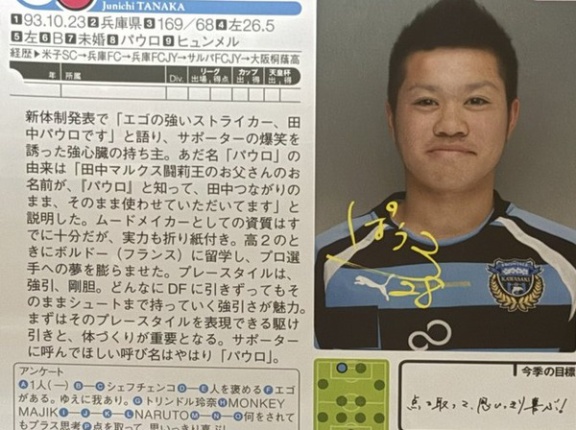 Junichi TANAKA
1 93.10.23 2 兵庫県 3 169/68 4 左26.5
5 左 6 B 7 未婚 8 パウロ 9 ヒュンメル
経歴▶米子SC→兵庫FC→兵庫FCJY→サルパFCJY→大阪桐蔭高
年 所属 Div. リーグ 出場、得点 カップ 出、得 天皇杯 出、得
新体制発表で「エゴの強いストライカー、田
中パウロです」と語り、サポーターの爆笑を
誘った強心臓の持ち主。あだ名「パウロ」の
由来は「田中マルクス闘莉王のお父さんのお
名前が、『パウロ』と知って、田中つながりの
まま、そのまま使わせていただいてます」と
説明した。ムードメイカーとしての資質はす
でに十分だが、実力も折り紙付き。高2のと
きにボルドー（フランス）に留学し、プロ選
手への夢を膨らませた。プレースタイルは、
強引、剛胆。どんなにDFに引きずってもそ
のままシュートまで持っていく強引さが魅力。
まずはそのプレースタイルを表現できる駆け
引きと、体づくりが重要となる。サポーター
に呼んでほしい呼び名はやはり「パウロ」。
アンケート
A1人(一) B―C シェフチェンコ D―E 人を褒める F エゴ
がある。ゆえに我あり。G トリンドル玲奈 H MONKEY
MAJIK I―J―K―L NARUTO M―N―O 何をされて
もプラス思考 P 点を取って、思いっきり喜ぶ！
ぱうろ
28
KAWASAKI
今季の目標
点を取って、思いっきり喜ぶ！